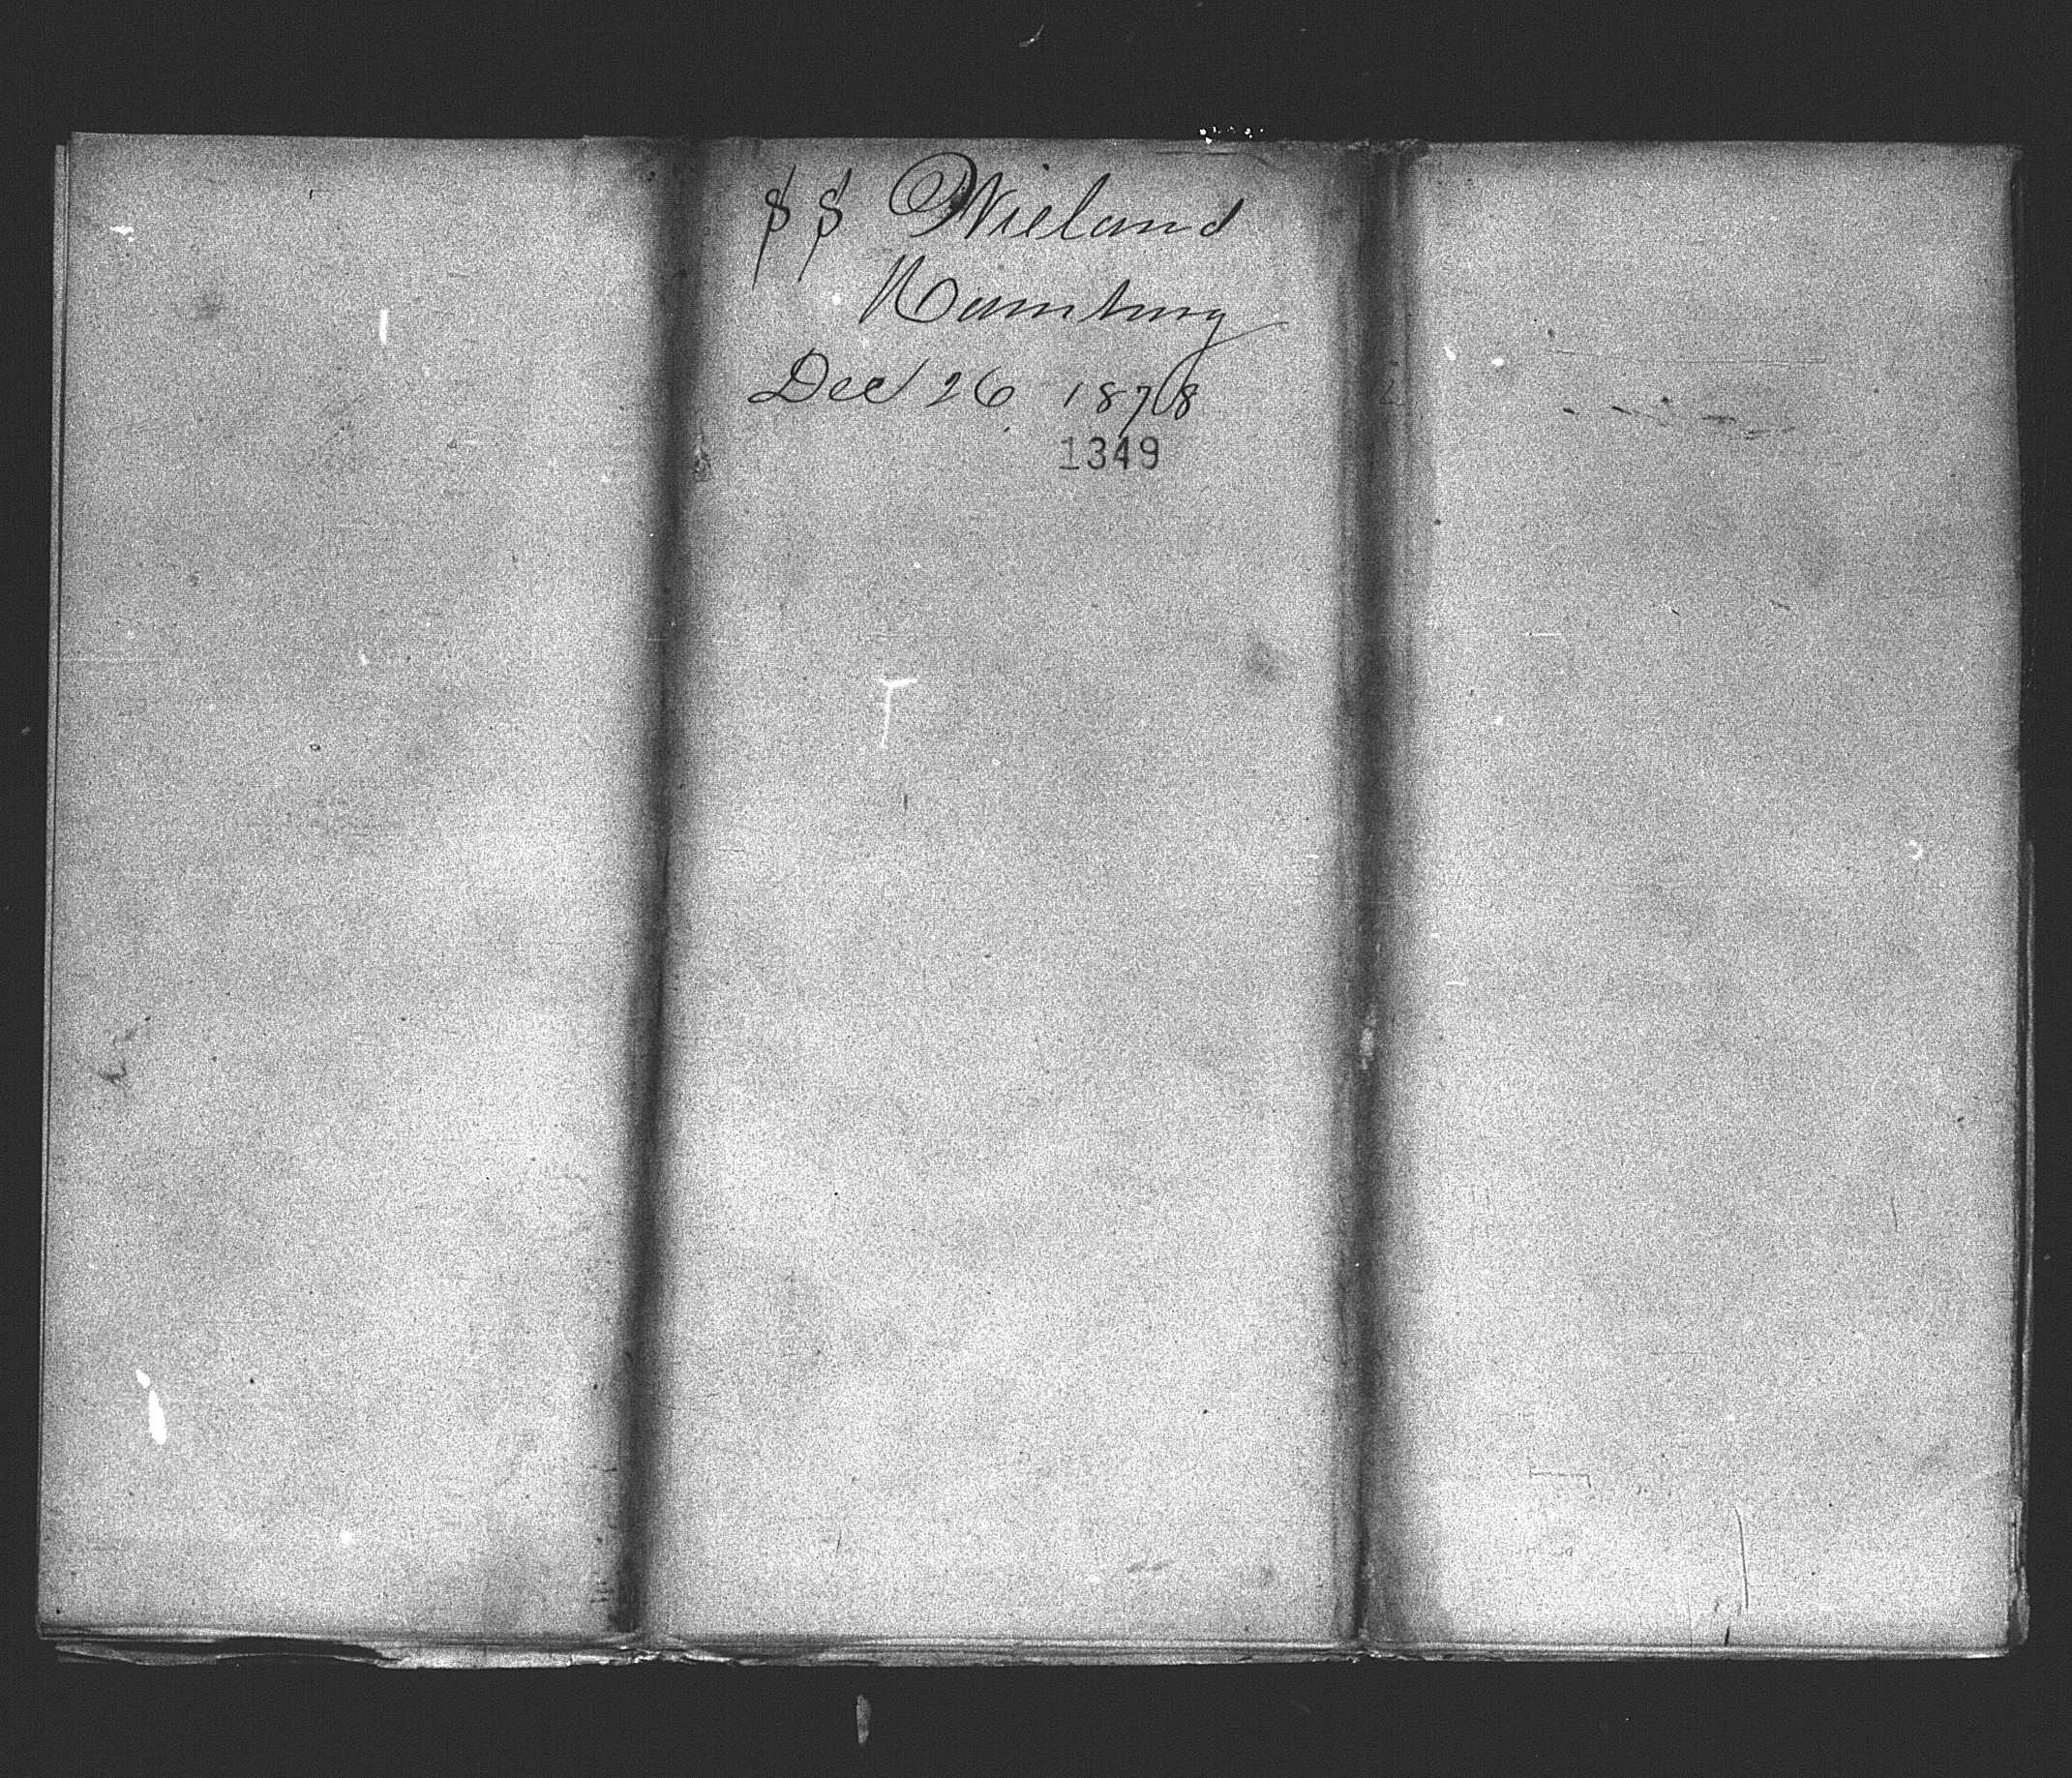 SS Wieland
Hamburg
Dec 26 1878
1349